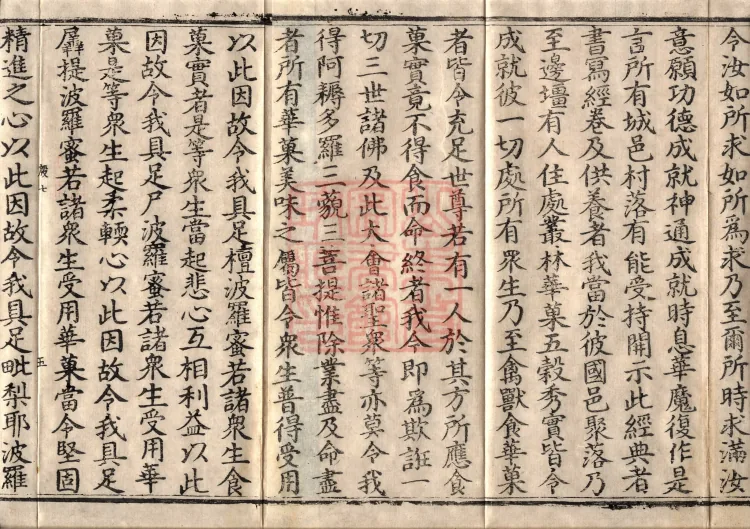 令汝如所求如所爲求乃至爾所時求滿汝
意願功德成就神通成就時息華魔復作是
言所有城邑村落有能受持開示此經典者
書寫經卷及供養者我當於彼國邑聚落乃
至邊壃有人住處叢林華菓五穀秀實皆令
成就彼一切處所有衆生乃至禽獸食華菓
者皆令充足世尊若有一人於其方所應食
菓實竟不得食而命終者我今即爲欺誑一
切三世諸佛及此大會諸聖衆等亦莫令我
得阿耨多羅三藐三菩提惟除業盡及命盡
者所有華菓美味之屬皆令衆生普得受用
以此因故令我具足檀波羅蜜若諸衆生食
菓實者是等衆生當起悲心互相利益以此
因故令我具足尸波羅蜜若諸衆生受用華
菓是等衆生起柔輭心以此因故令我具足
羼提波羅蜜若諸衆生受用華菓當令堅固
精進之心以此因故令我具足毗梨耶波羅
五